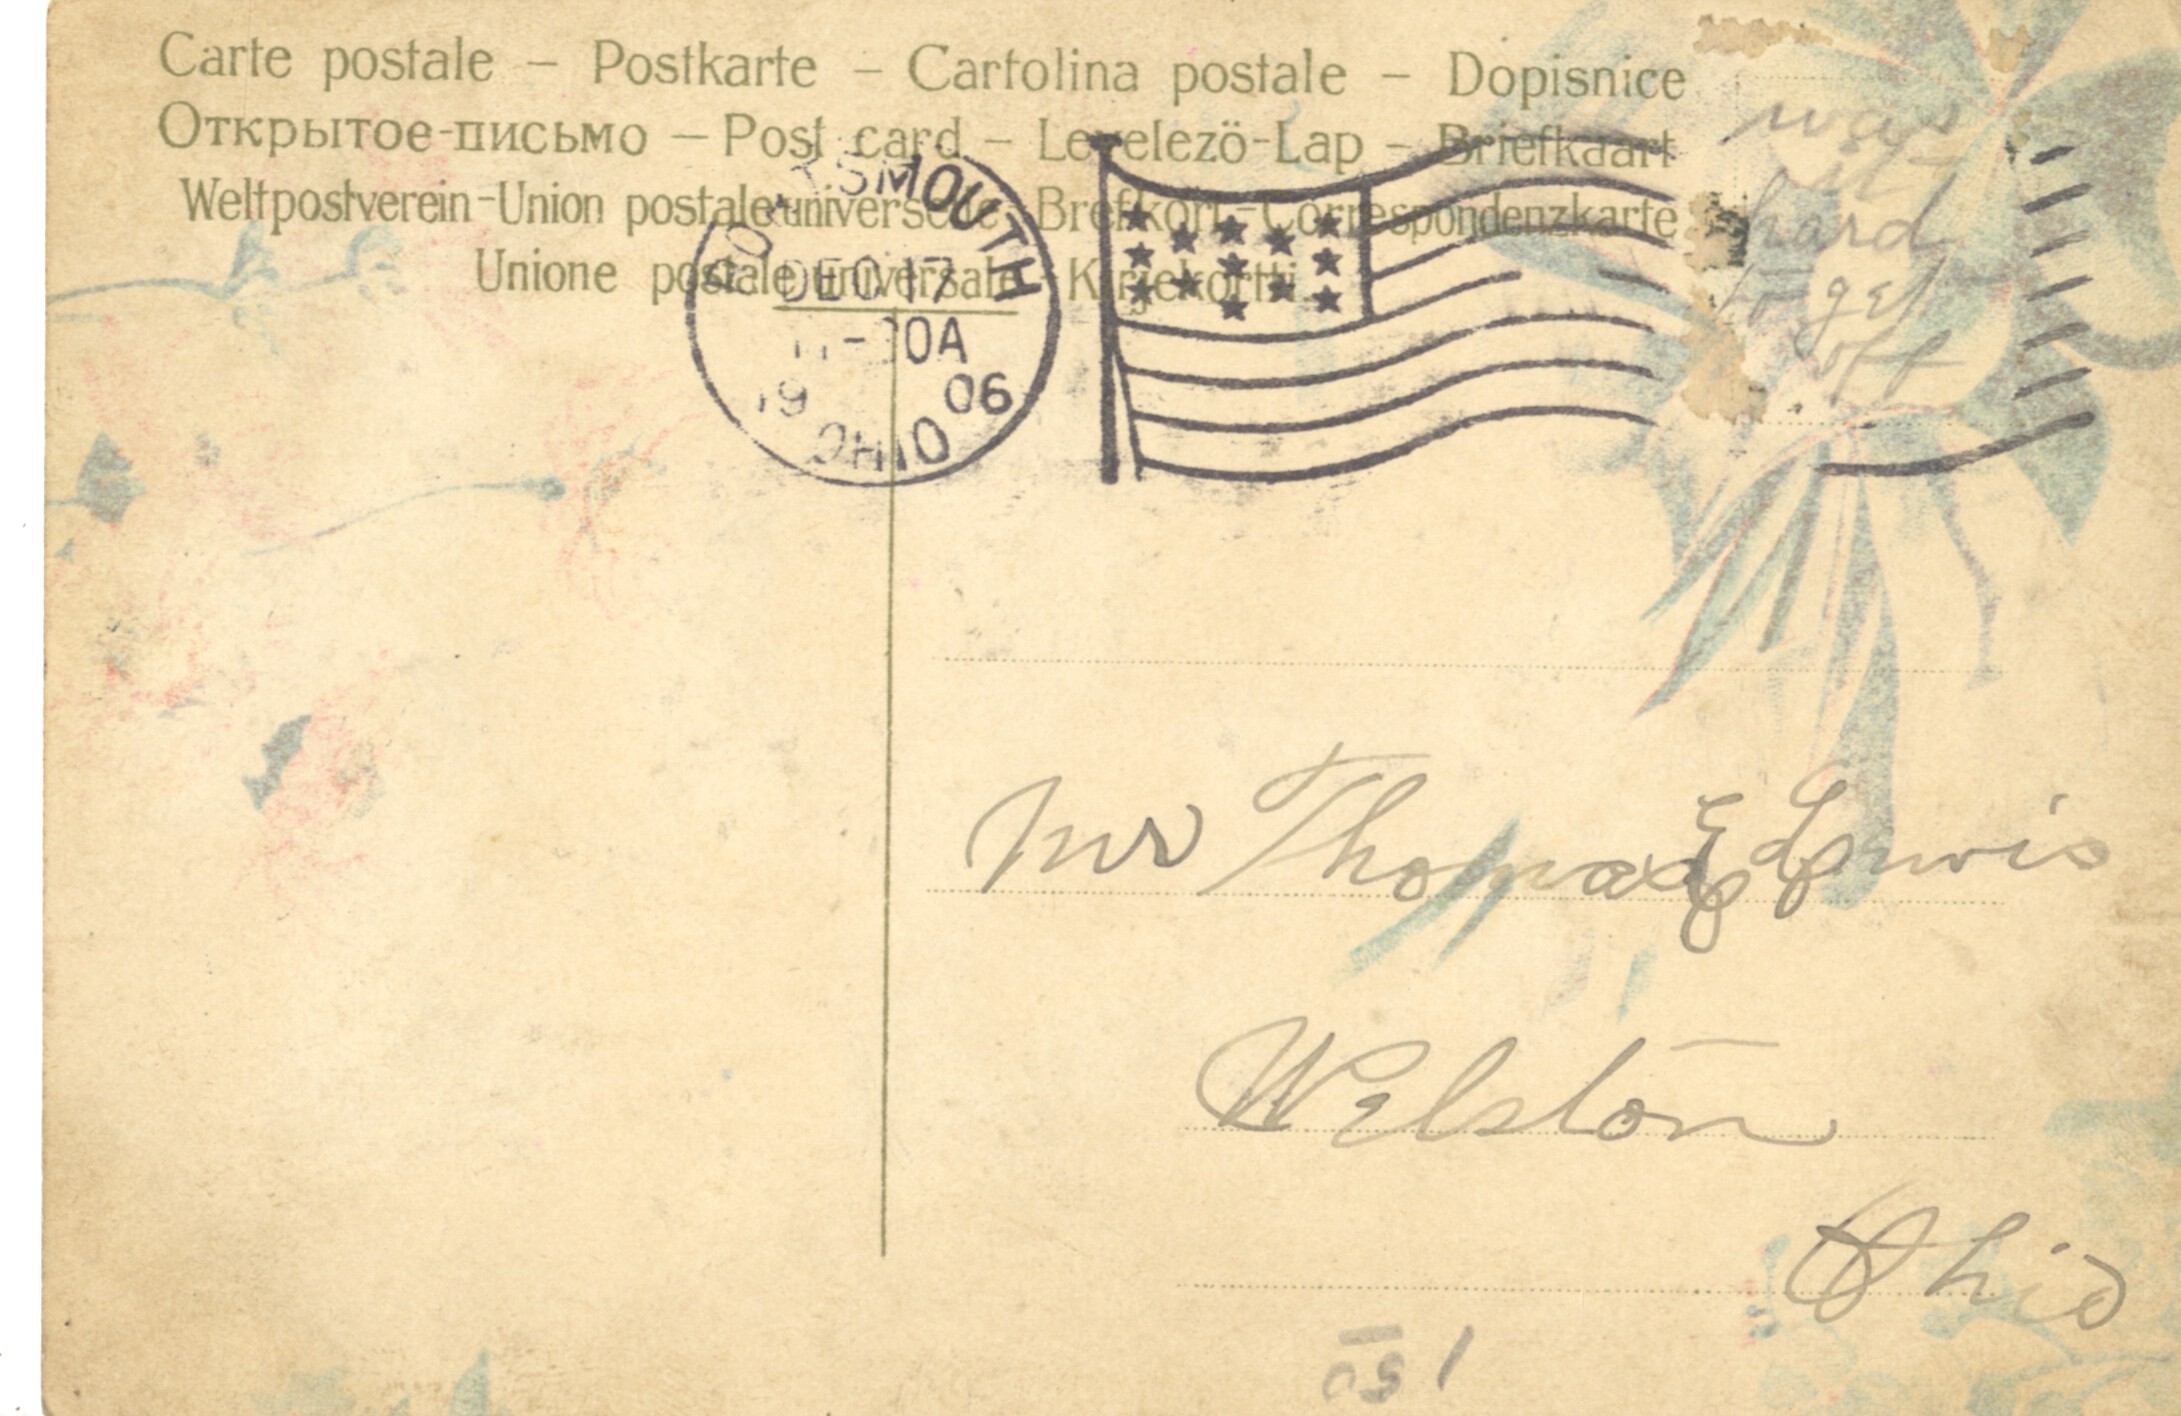 Carte postale – Postkarte – Cartolina postale – Dopisnice
Открытое-письмо – Post card – Levelezö-Lap – Briefkaart
Weltpostverein-Union postale universelle - Brefkort-Correspondenzkarte
Unione postale universale - Kirjekortti.
PORTSMOUTH
DEC 17
11-30A
1906
OHIO
was
it
hard
to get
off
Mr Thomas E Lewis
Welston
Ohio